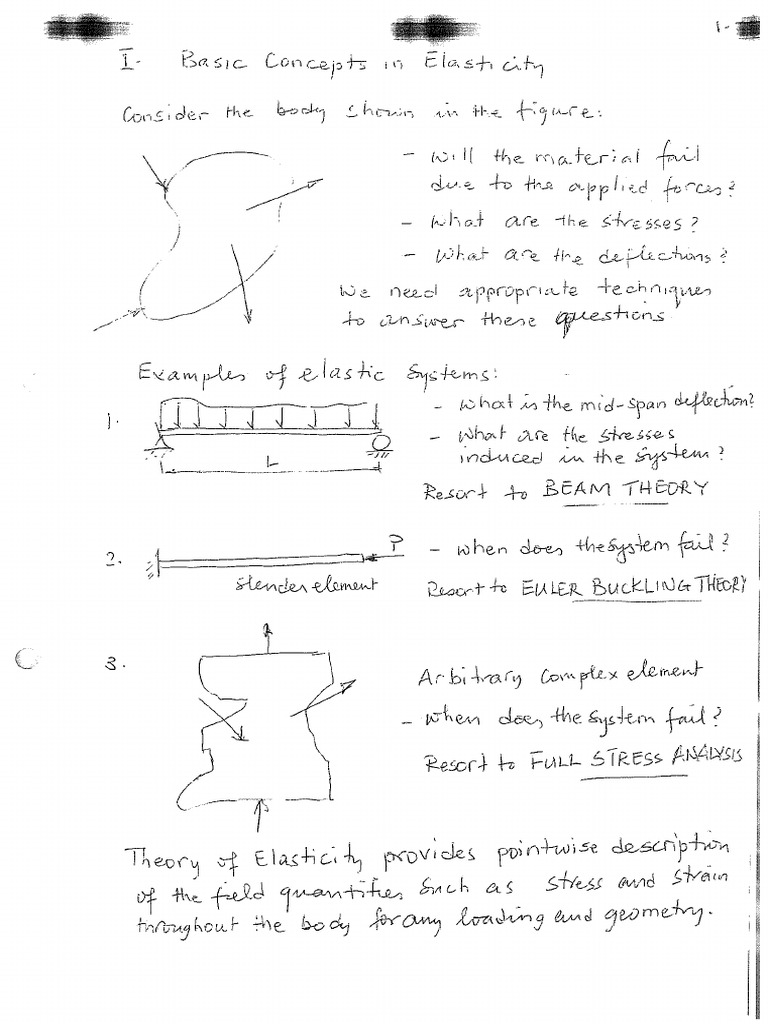 1-
I- Basic Concepts in Elasticity
Consider the body shown in the figure:
- Will the material fail
due to the applied forces?
- What are the stresses?
- What are the deflections?
We need appropriate techniques
to answer these questions
Examples of elastic Systems:
1.
- What is the mid-span deflection?
- What are the stresses
induced in the system?
L
Resort to BEAM THEORY
2.
P
- When does the system fail?
slender element
Resort to EULER BUCKLING THEORY
3.
Arbitrary complex element
- When does the system fail?
Resort to FULL STRESS ANALYSIS
Theory of Elasticity provides pointwise description
of the field quantities such as stress and strain
throughout the body for any loading and geometry.